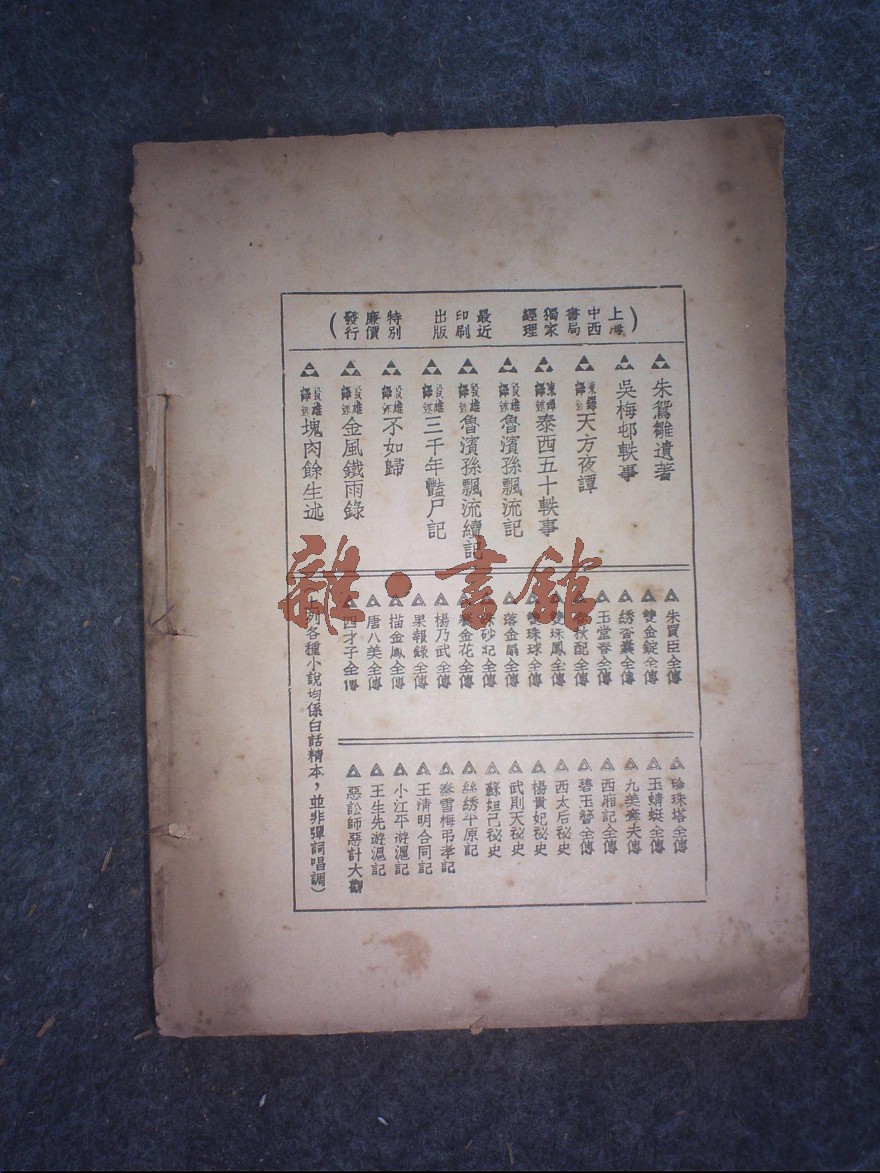 （上海中西書局獨家經理　最近印刷出版　特別廉價發行）
朱鴛雛遺著
吳梅邨軼事
天方夜譚
泰西五十軼事
魯濱孫飄流記
魯濱孫飄流續記
三千年豔尸記
不如歸
金風鐵雨錄
塊肉餘生述
朱買臣全傳
雙金錠全傳
綉香囊全傳
玉堂春全傳
秋配全傳
雙珠鳳全傳
雙珠球全傳
落金扇全傳
砂記全傳
金花全傳
楊乃武全傳
果報錄全傳
描金鳳全傳
唐八美全傳
四才子全傳
珍珠塔全傳
玉蜻蜓全傳
九美奪夫傳
西廂記全傳
碧玉簪全傳
西太后秘史
楊貴妃秘史
武則天秘史
蘇妲己秘史
絲綉平原記
秦雪梅弔孝記
王清明合同記
小江平游滬記
王先生游滬記
惡訟師惡計大觀
列各種小說均係白話精本，並非彈詞唱調）
雜·書館